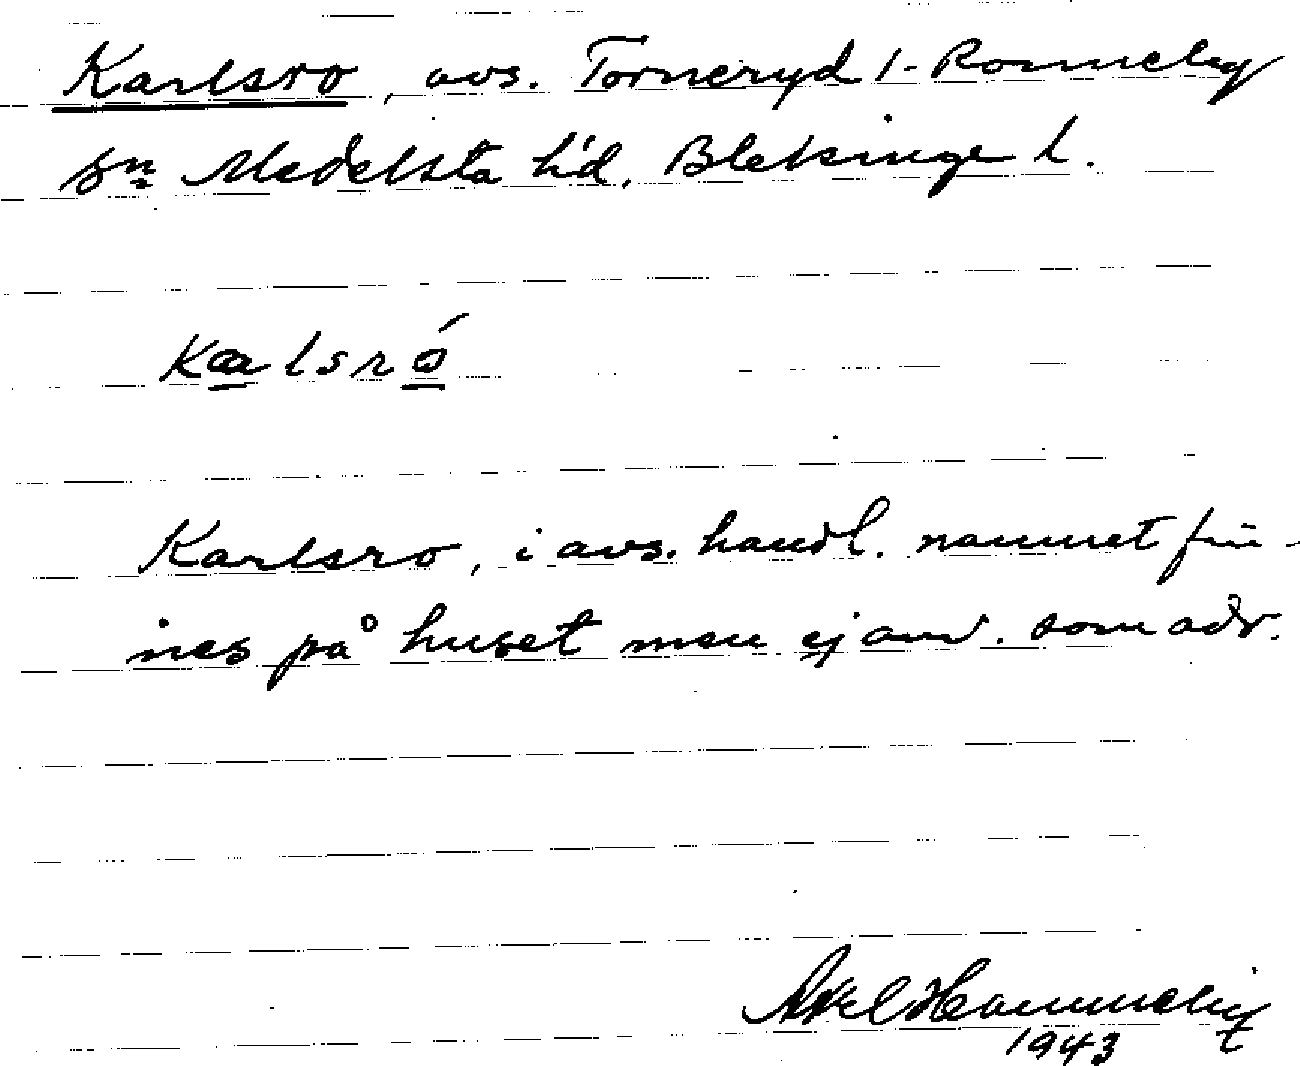 Karlsro, avs. Torneryd 1- Ronneby
sn Medelsta hd. Blekinge l.
Kalsró
Karlsro, i avs. handl. namnet fin-
nes på huset men ej anv. som adr.
Axel
1943